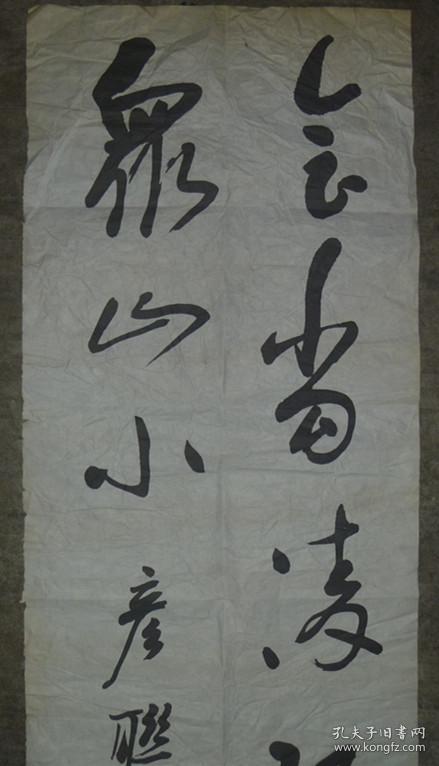 会当凌
众山小 彦联
孔夫子旧书网
www.kongfz.com